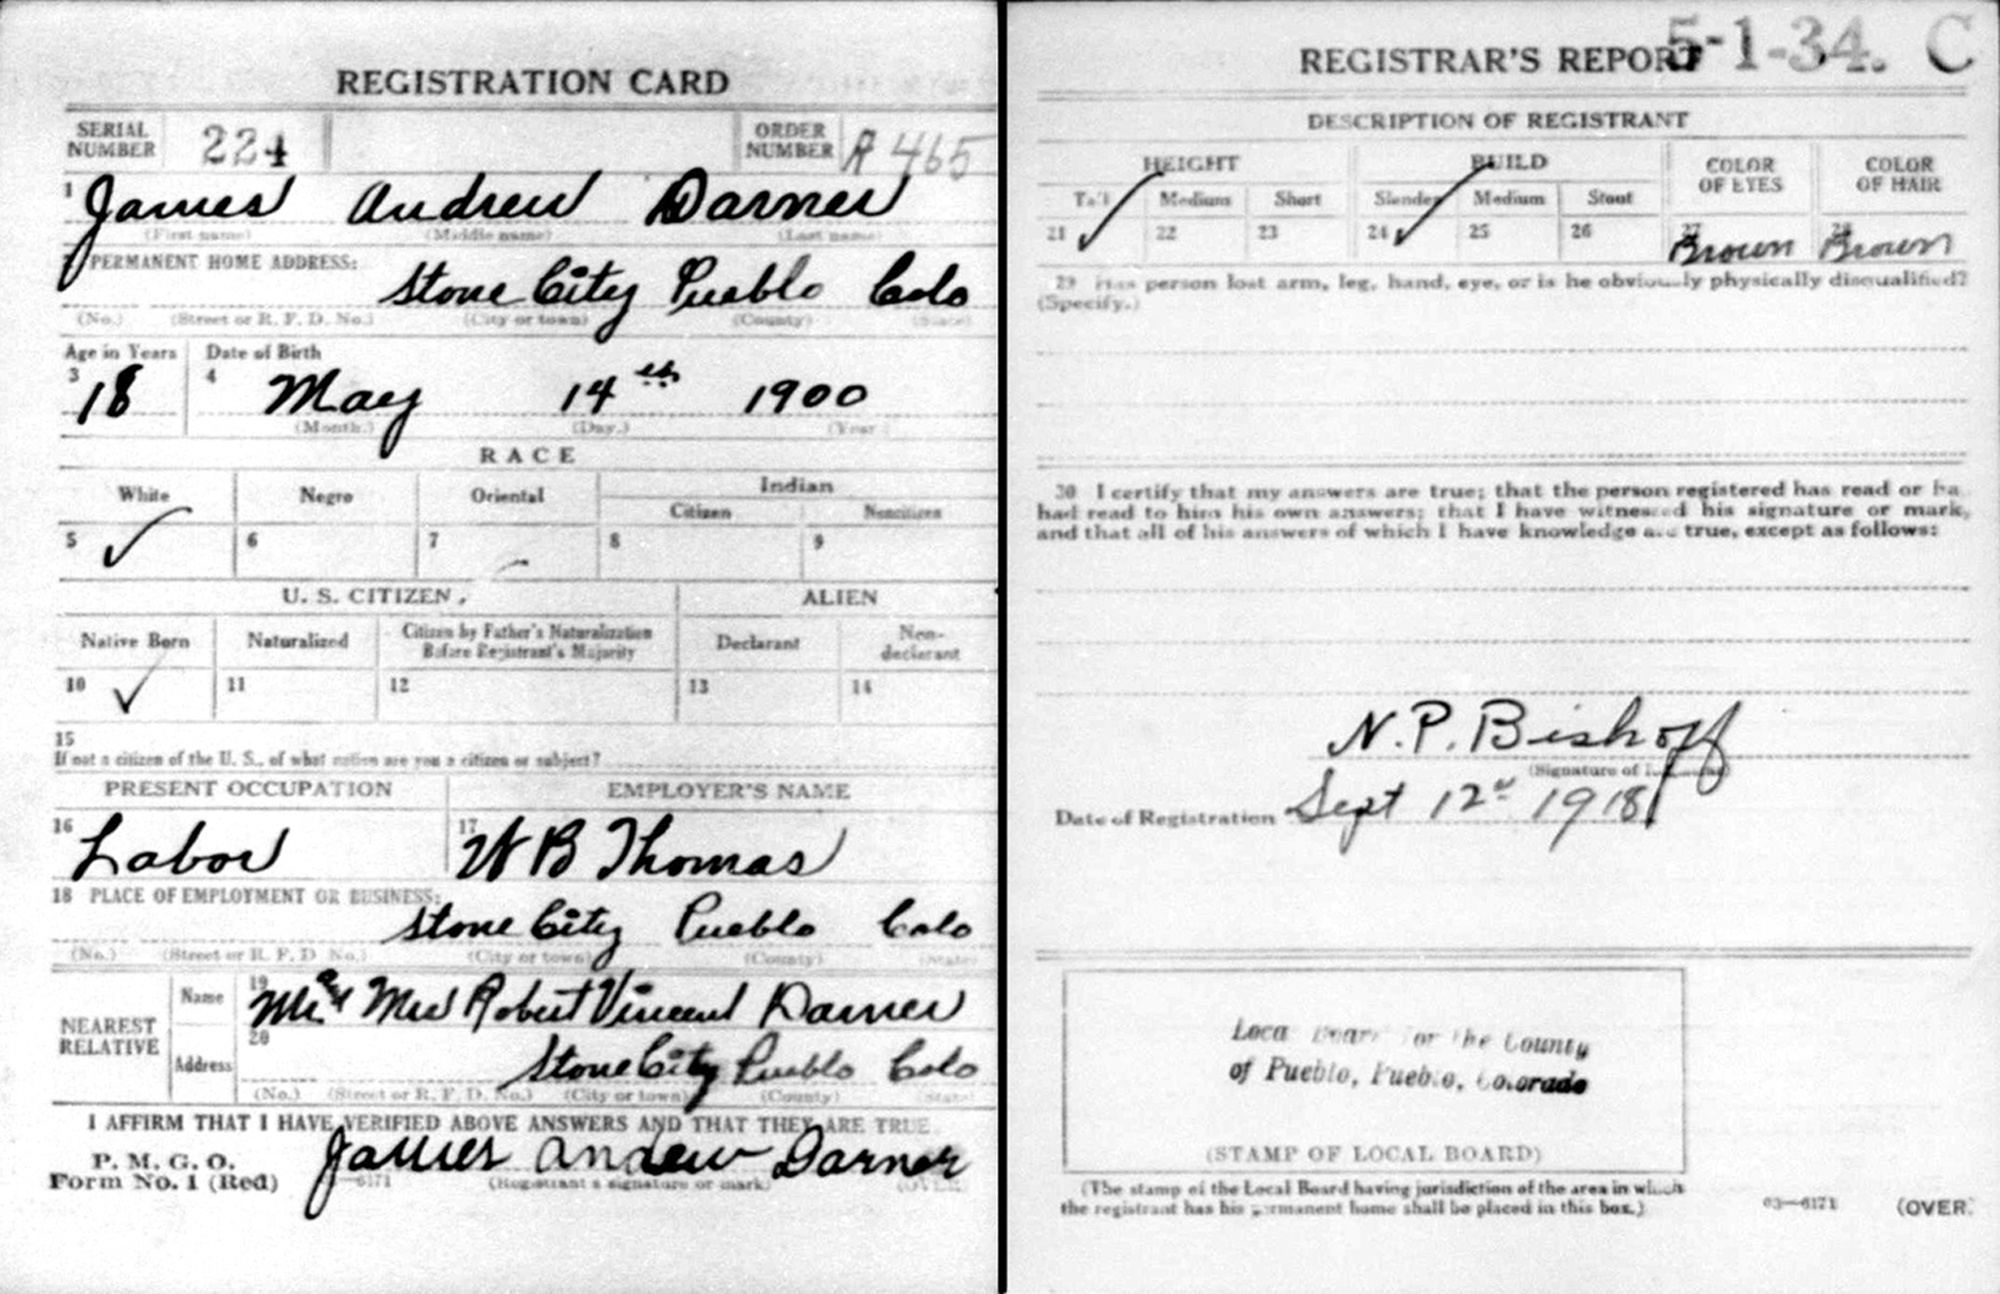 REGISTRATION CARD
SERIAL NUMBER 224 ORDER NUMBER A 465
1 James Andrew Darner
(First name) (Middle name) (Last name)
2 PERMANENT HOME ADDRESS:
Stone City Pueblo Colo
(No.) (Street or R. F. D. No.) (City or town) (County) (State)
Age in Years Date of Birth
3 18 4 May 14th 1900
(Month.) (Day.) (Year.)
RACE
White Negro Oriental Indian
Citizen Noncitizen
5 ✓ 6 7 8 9
U. S. CITIZEN. ALIEN
Native Born Naturalized Citizen by Father's Naturalization Before Registrant's Majority Declarant Non-declarant
10 ✓ 11 12 13 14
15
If not a citizen of the U. S., of what nation are you a citizen or subject?
PRESENT OCCUPATION EMPLOYER'S NAME
16 Labor 17 W B Thomas
18 PLACE OF EMPLOYMENT OR BUSINESS:
Stone City Pueblo Colo
(No.) (Street or R. F. D. No.) (City or town) (County) (State)
NEAREST RELATIVE Name 19 Mr and Mrs Robert Vincent Darner
Address 20 Stone City Pueblo Colo
(No.) (Street or R. F. D. No.) (City or town) (County) (State)
I AFFIRM THAT I HAVE VERIFIED ABOVE ANSWERS AND THAT THEY ARE TRUE.
P. M. G. O.
Form No. 1 (Red) James Andrew Darner
—6171 (Registrant's signature or mark) (OVER)
REGISTRAR'S REPORT 5-1-34. C
DESCRIPTION OF REGISTRANT
HEIGHT BUILD COLOR OF EYES COLOR OF HAIR
Tall Medium Short Slender Medium Stout
21 ✓ 22 23 24 ✓ 25 26 27 Brown 28 Brown
29 Has person lost arm, leg, hand, eye, or is he obviously physically disqualified?
(Specify.)
30 I certify that my answers are true; that the person registered has read or ha
had read to him his own answers; that I have witnessed his signature or mark,
and that all of his answers of which I have knowledge are true, except as follows:
N. P. Bishoff
(Signature of
Date of Registration Sept 12" 1918
Local Board for the County
of Pueblo, Pueblo, Colorado
(STAMP OF LOCAL BOARD)
(The stamp of the Local Board having jurisdiction of the area in which
the registrant has his permanent home shall be placed in this box.)
03—6171 (OVER)